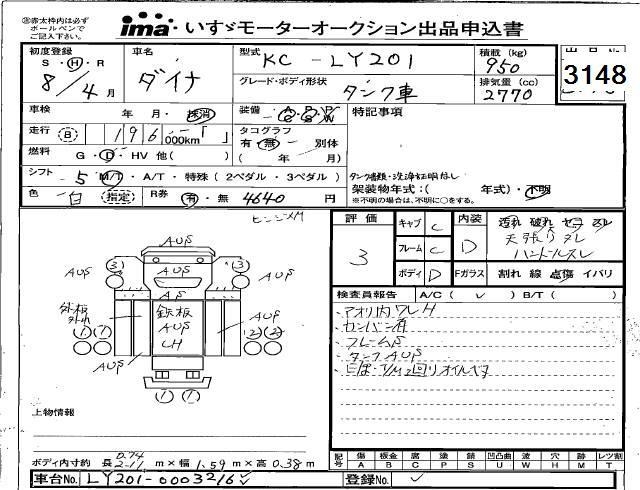 ㊟赤太枠内は必ず
ボールペンで
ご記入下さい。
ima いすゞモーターオークション出品申込書
初度登録
S・H・R
8/4月
車名
ダイナ
型式 KC-LY201
グレード・ボディ形状
タンク車
積載(kg)
950
排気量(cc)
2770
3148
車検 年 月・抹消
装備
特記事項
走行 196,000km
タコグラフ
有・無・別体
( 年 月)
燃料 G・D・HV 他( )
シフト 5 M/T・A/T・特殊(2ペダル・3ペダル)
タンク書類・洗浄証明なし
架装物年式:( 年式)・不明
※不明の場合は、不明に○をする。
色 白 指定 R券 有・無 4640円
ヒンジXM
評価 3
キャブ C
フレーム C
ボディ D
内装 D
汚れ 破れ セコ スレ
天張りダレ
ハンドルスレ
Fガラス 割れ 線 点傷 イバリ
検査員報告 A/C( ✓ )B/T( )
・アオリ内ワレH
・カンバン有
・フレームP
・タンクAUP
AUP
③ ③
AUP AUP
AP
外板
外れ
鉄板
AUP
LH
AUP
① ⑦ ② ②
AUP
① ①
上物情報
ボディ内寸約 長 2.11 m×幅 1.59m×高0.38m
0.74
記号 傷 板金 腐 塗 錆 凹凸曲 波 穴 跡 レツ割
A B C P S U W H M T
車台No. LY201-0003216
登録No.